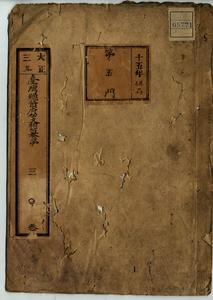 大正
三年
臺灣總督府公文類纂
三ノ巻
十五年保存
第五門
1